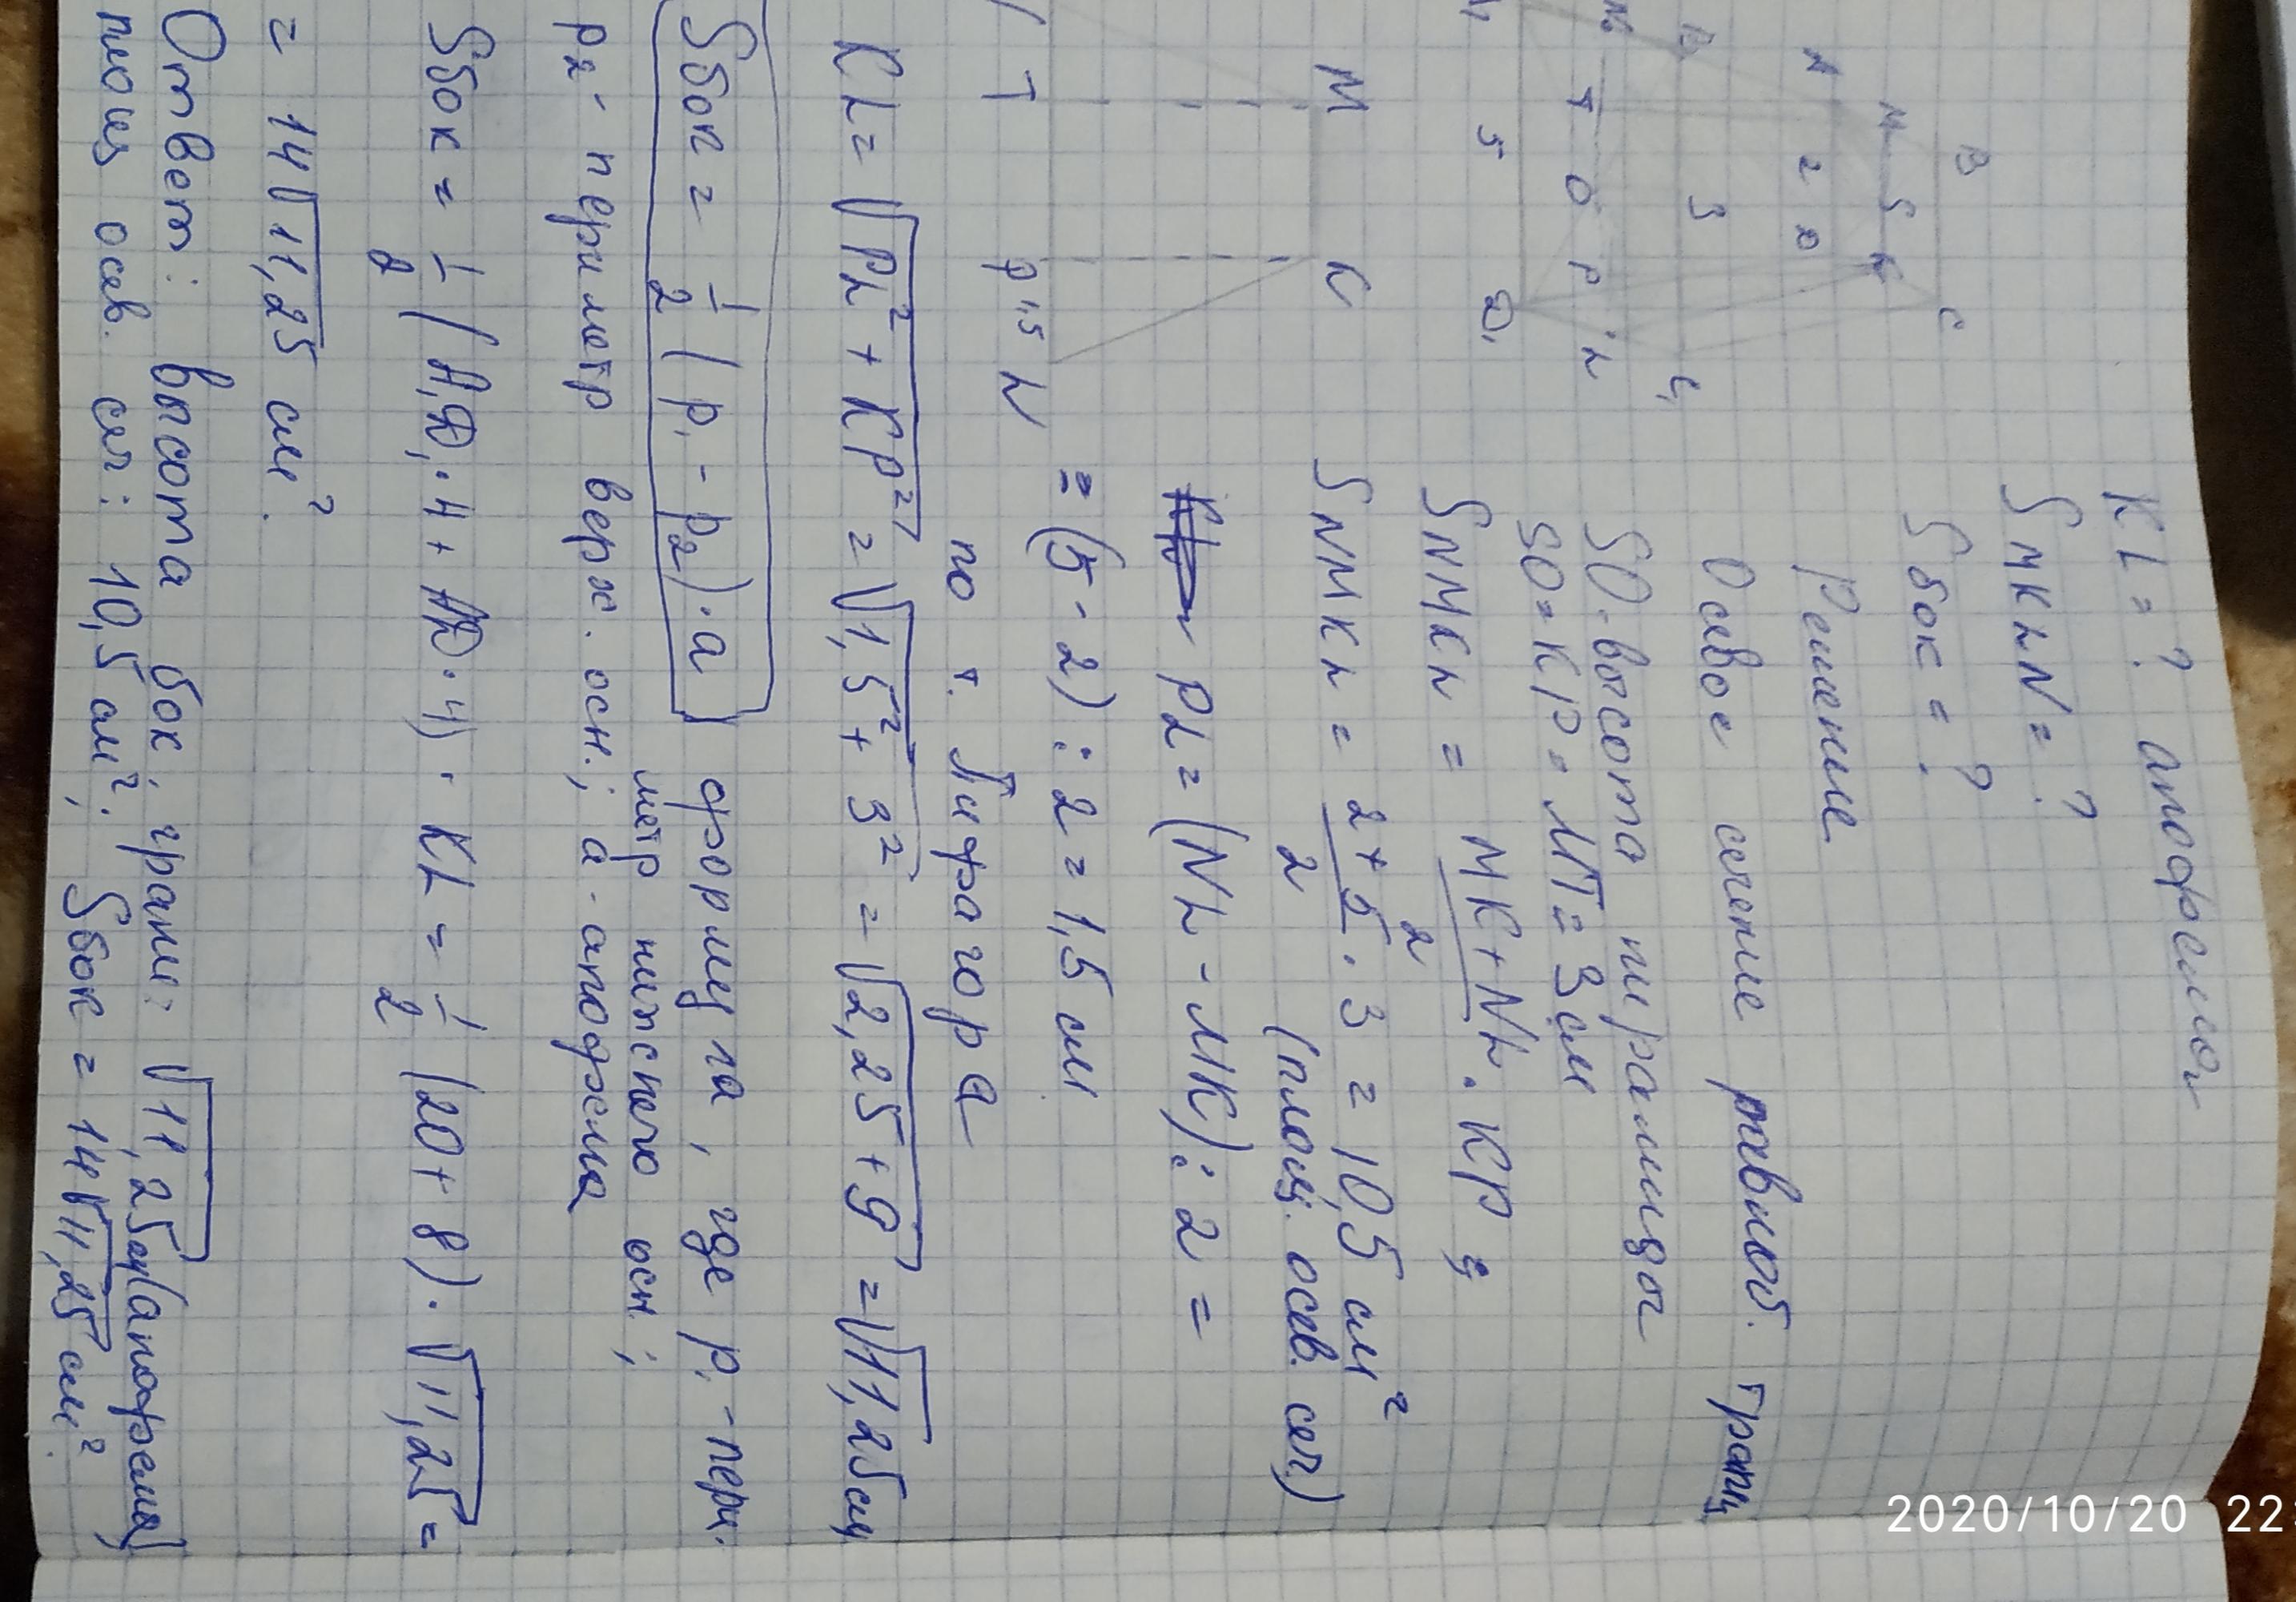 KL = ? апофема
SMKLN = ?
Sбок = ?
Решение
Осевое сечение равноб. трапец
SO - высота пирамида
SO = KP = MT = 3 см
B C
M S K
A 2 D
B₁ 3 C₁
N T O P L
A₁ 5 D₁
SNMKL = MK + NL / 2 · KP ;
M K
SNMKL = 2 + 5 / 2 · 3 = 10,5 см²
(площ. осев. сеч)
PL = (NL - MK) : 2 =
= (5 - 2) : 2 = 1,5 см
T P 1,5 L
по т. Пифагора
KL = √PL² + KP² = √1,5² + 3² = √2,25 + 9 = √11,25 см
Sбок = 1/2 (p₁ - p₂) · a формула, где p₁ - пери-
метр нижнего осн ;
p₂ - периметр верх. осн. ; a - апофема
Sбок = 1/2 (A₁D₁ · 4 + AD · 4) · KL = 1/2 (20 + 8) · √11,25 =
= 14√11,25 см².
Ответ: высота бок. грани: √11,25 см (апофема)
площ осев. сеч: 10,5 см²; Sбок = 14√11,25 см²
2020/10/20 22: